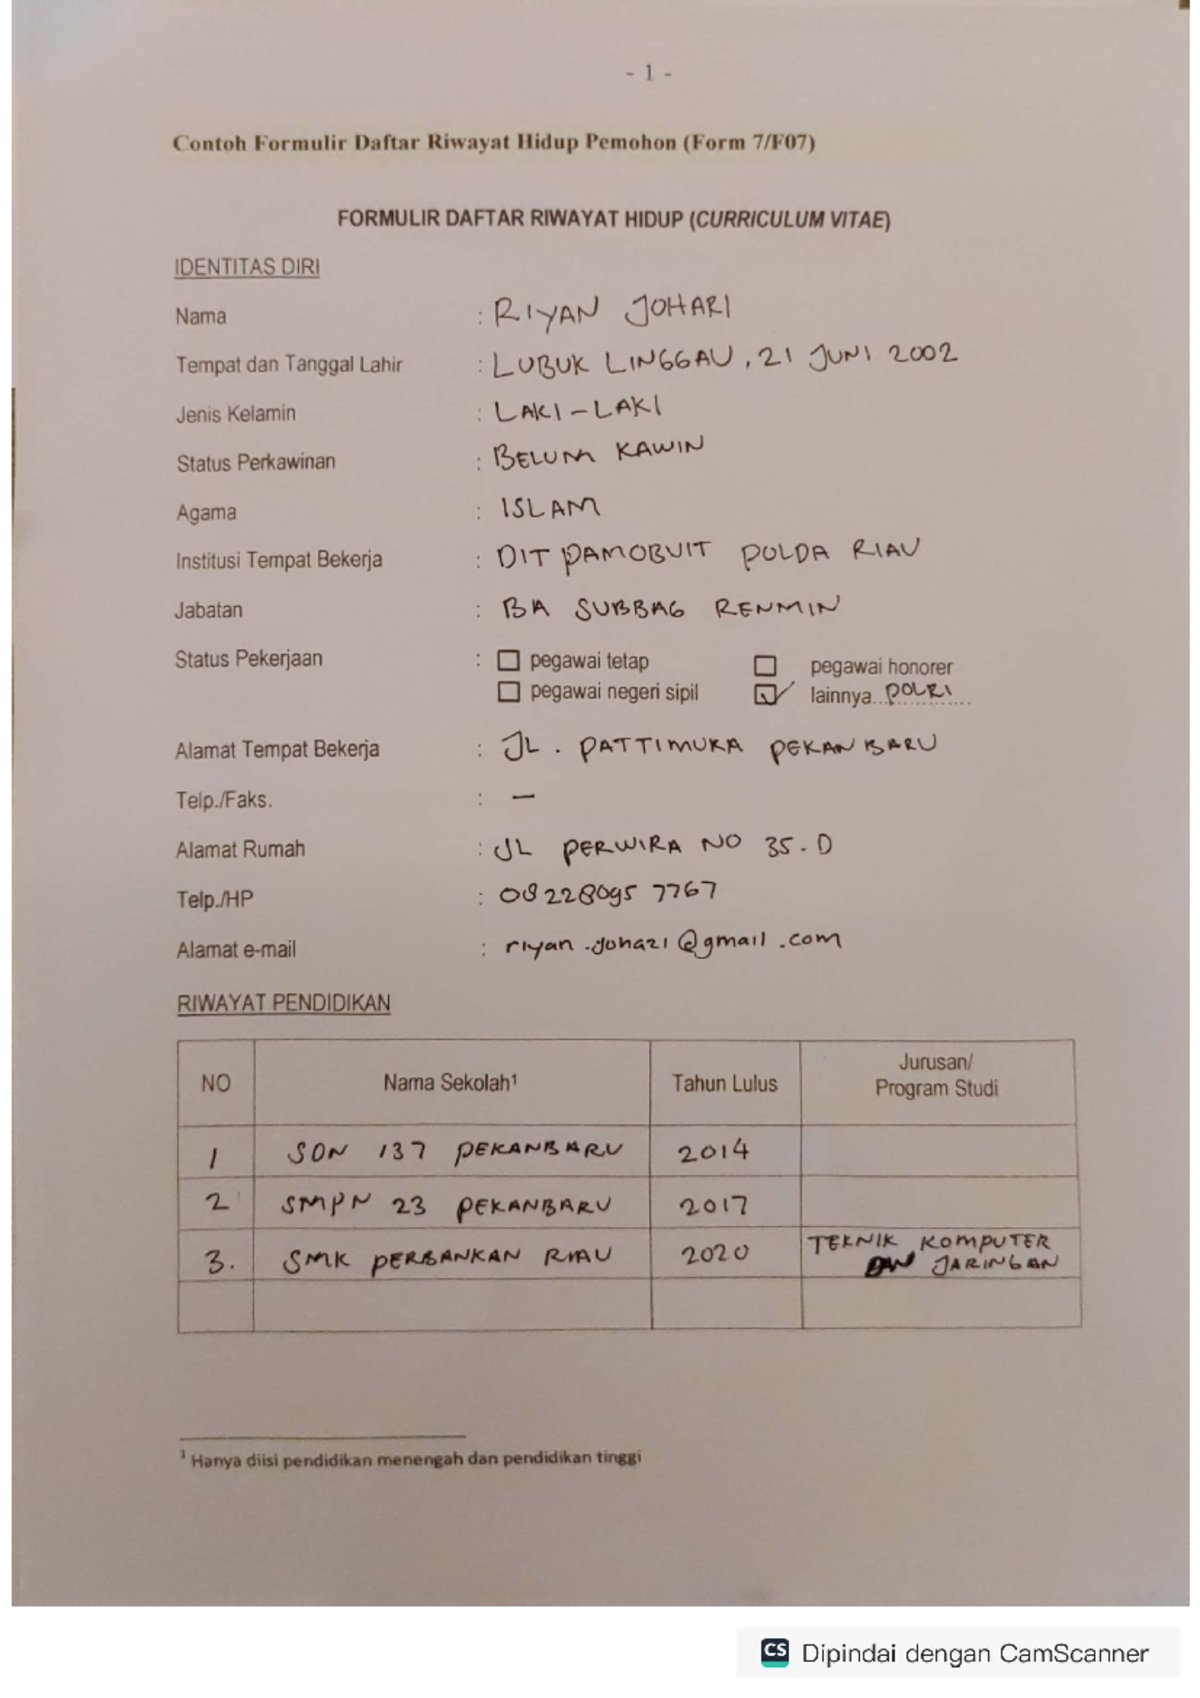 - 1 -
Contoh Formulir Daftar Riwayat Hidup Pemohon (Form 7/F07)
FORMULIR DAFTAR RIWAYAT HIDUP (CURRICULUM VITAE)
IDENTITAS DIRI
Nama : RIYAN JOHARI
Tempat dan Tanggal Lahir : LUBUK LINGGAU, 21 JUNI 2002
Jenis Kelamin : LAKI-LAKI
Status Perkawinan : BELUM KAWIN
Agama : ISLAM
Institusi Tempat Bekerja : DIT PAMOBVIT POLDA RIAU
Jabatan : BA SUBBAG RENMIN
Status Pekerjaan : ☐ pegawai tetap ☐ pegawai honorer
☐ pegawai negeri sipil ☑ lainnya..POLRI
Alamat Tempat Bekerja : JL. PATTIMURA PEKANBARU
Telp./Faks. : —
Alamat Rumah : JL PERWIRA NO 35.D
Telp./HP : 08228095 7767
Alamat e-mail : riyan.johari@gmail.com
RIWAYAT PENDIDIKAN
NO Nama Sekolah¹ Tahun Lulus Jurusan/ Program Studi
1 SDN 137 PEKANBARU 2014
2 SMPN 23 PEKANBARU 2017
3. SMK PERBANKAN RIAU 2020 TEKNIK KOMPUTER
DAN JARINGAN
¹ Hanya diisi pendidikan menengah dan pendidikan tinggi
CS Dipindai dengan CamScanner